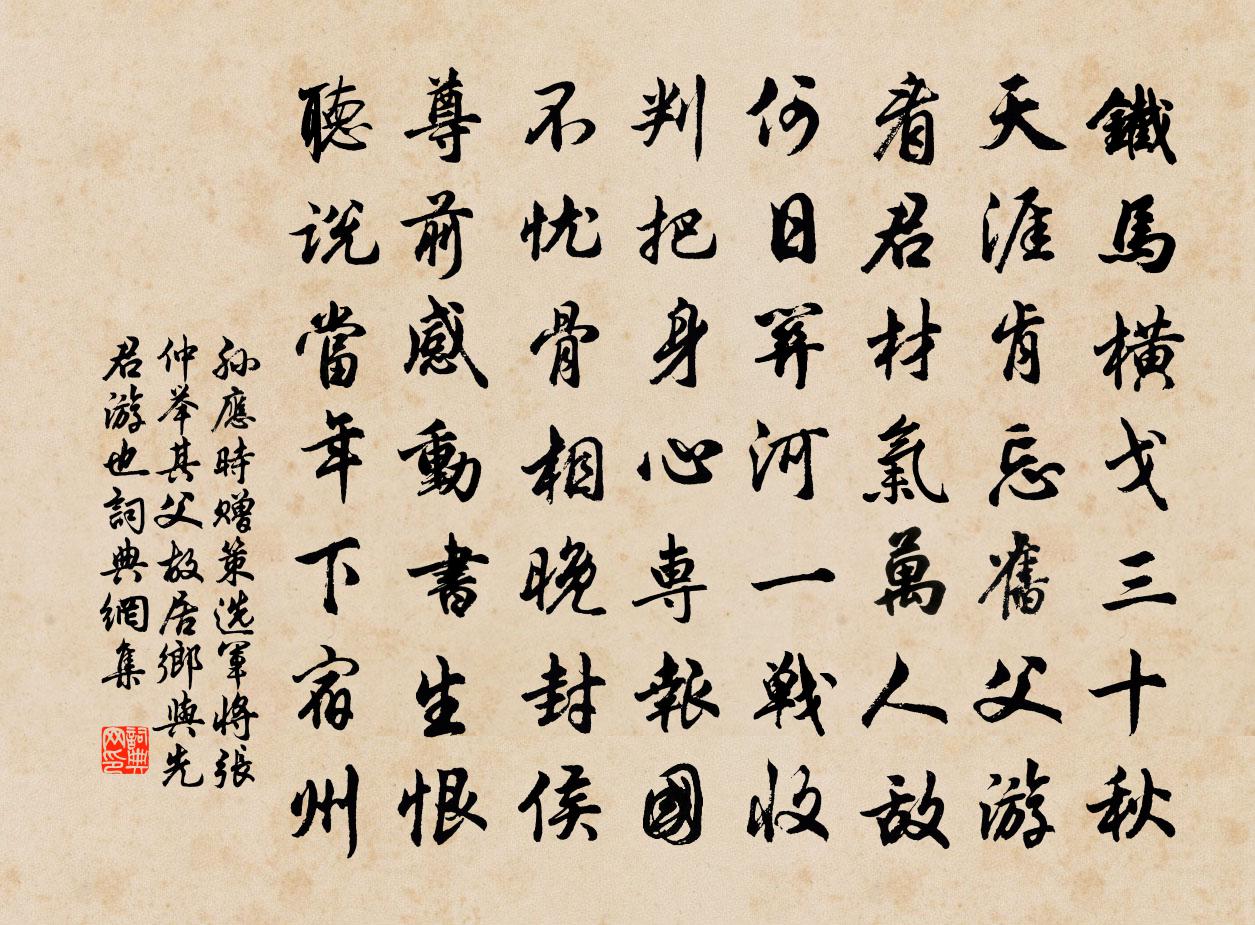 鐵馬橫戈三十秋
天涯肯忘舊父游
看君材氣萬人敵
何日關河一戰收
判把身心專報國
不忧骨相晚封侯
尊前感動書生恨
聽说當年下宿州
孙應時赠策选軍將張
仲举其父故居鄉與先
君游也詞典網集
詞典网印